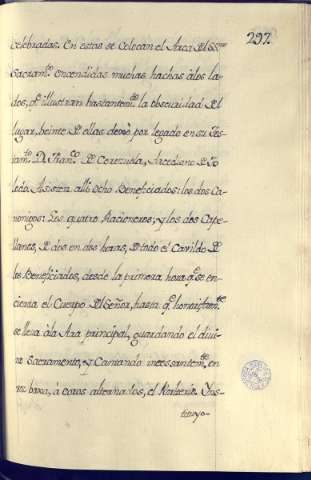 297.
celebradas. En estas se Colocan el Arca Del SSmo
Sacramto. encendidas muchas hachas á los la-
dos, qe. illustran bastantemte. la obscuridad Del
lugar, beinte De ellas dexò por legado en su Tes-
tamto. D. Franco. De Cerezuela, Arcediano De To-
ledo. Asisten alli Ocho Beneficiados: los dos Ca-
nonigos: Los quatro Racioneros; y los dos Cape-
llanes, De dos en dos horas, D todo el Cavildo De
los Beneficiados, desde la primera hora qe. se en-
cierra el Cuerpo Del Señor, hasta qe.
se lleva á la Ara principal, guardando el divi-
no Sacramento, y Cantando incessantemte. en
voz baxa, á coros alternados, el Psalterio. Ins-
tituyo-